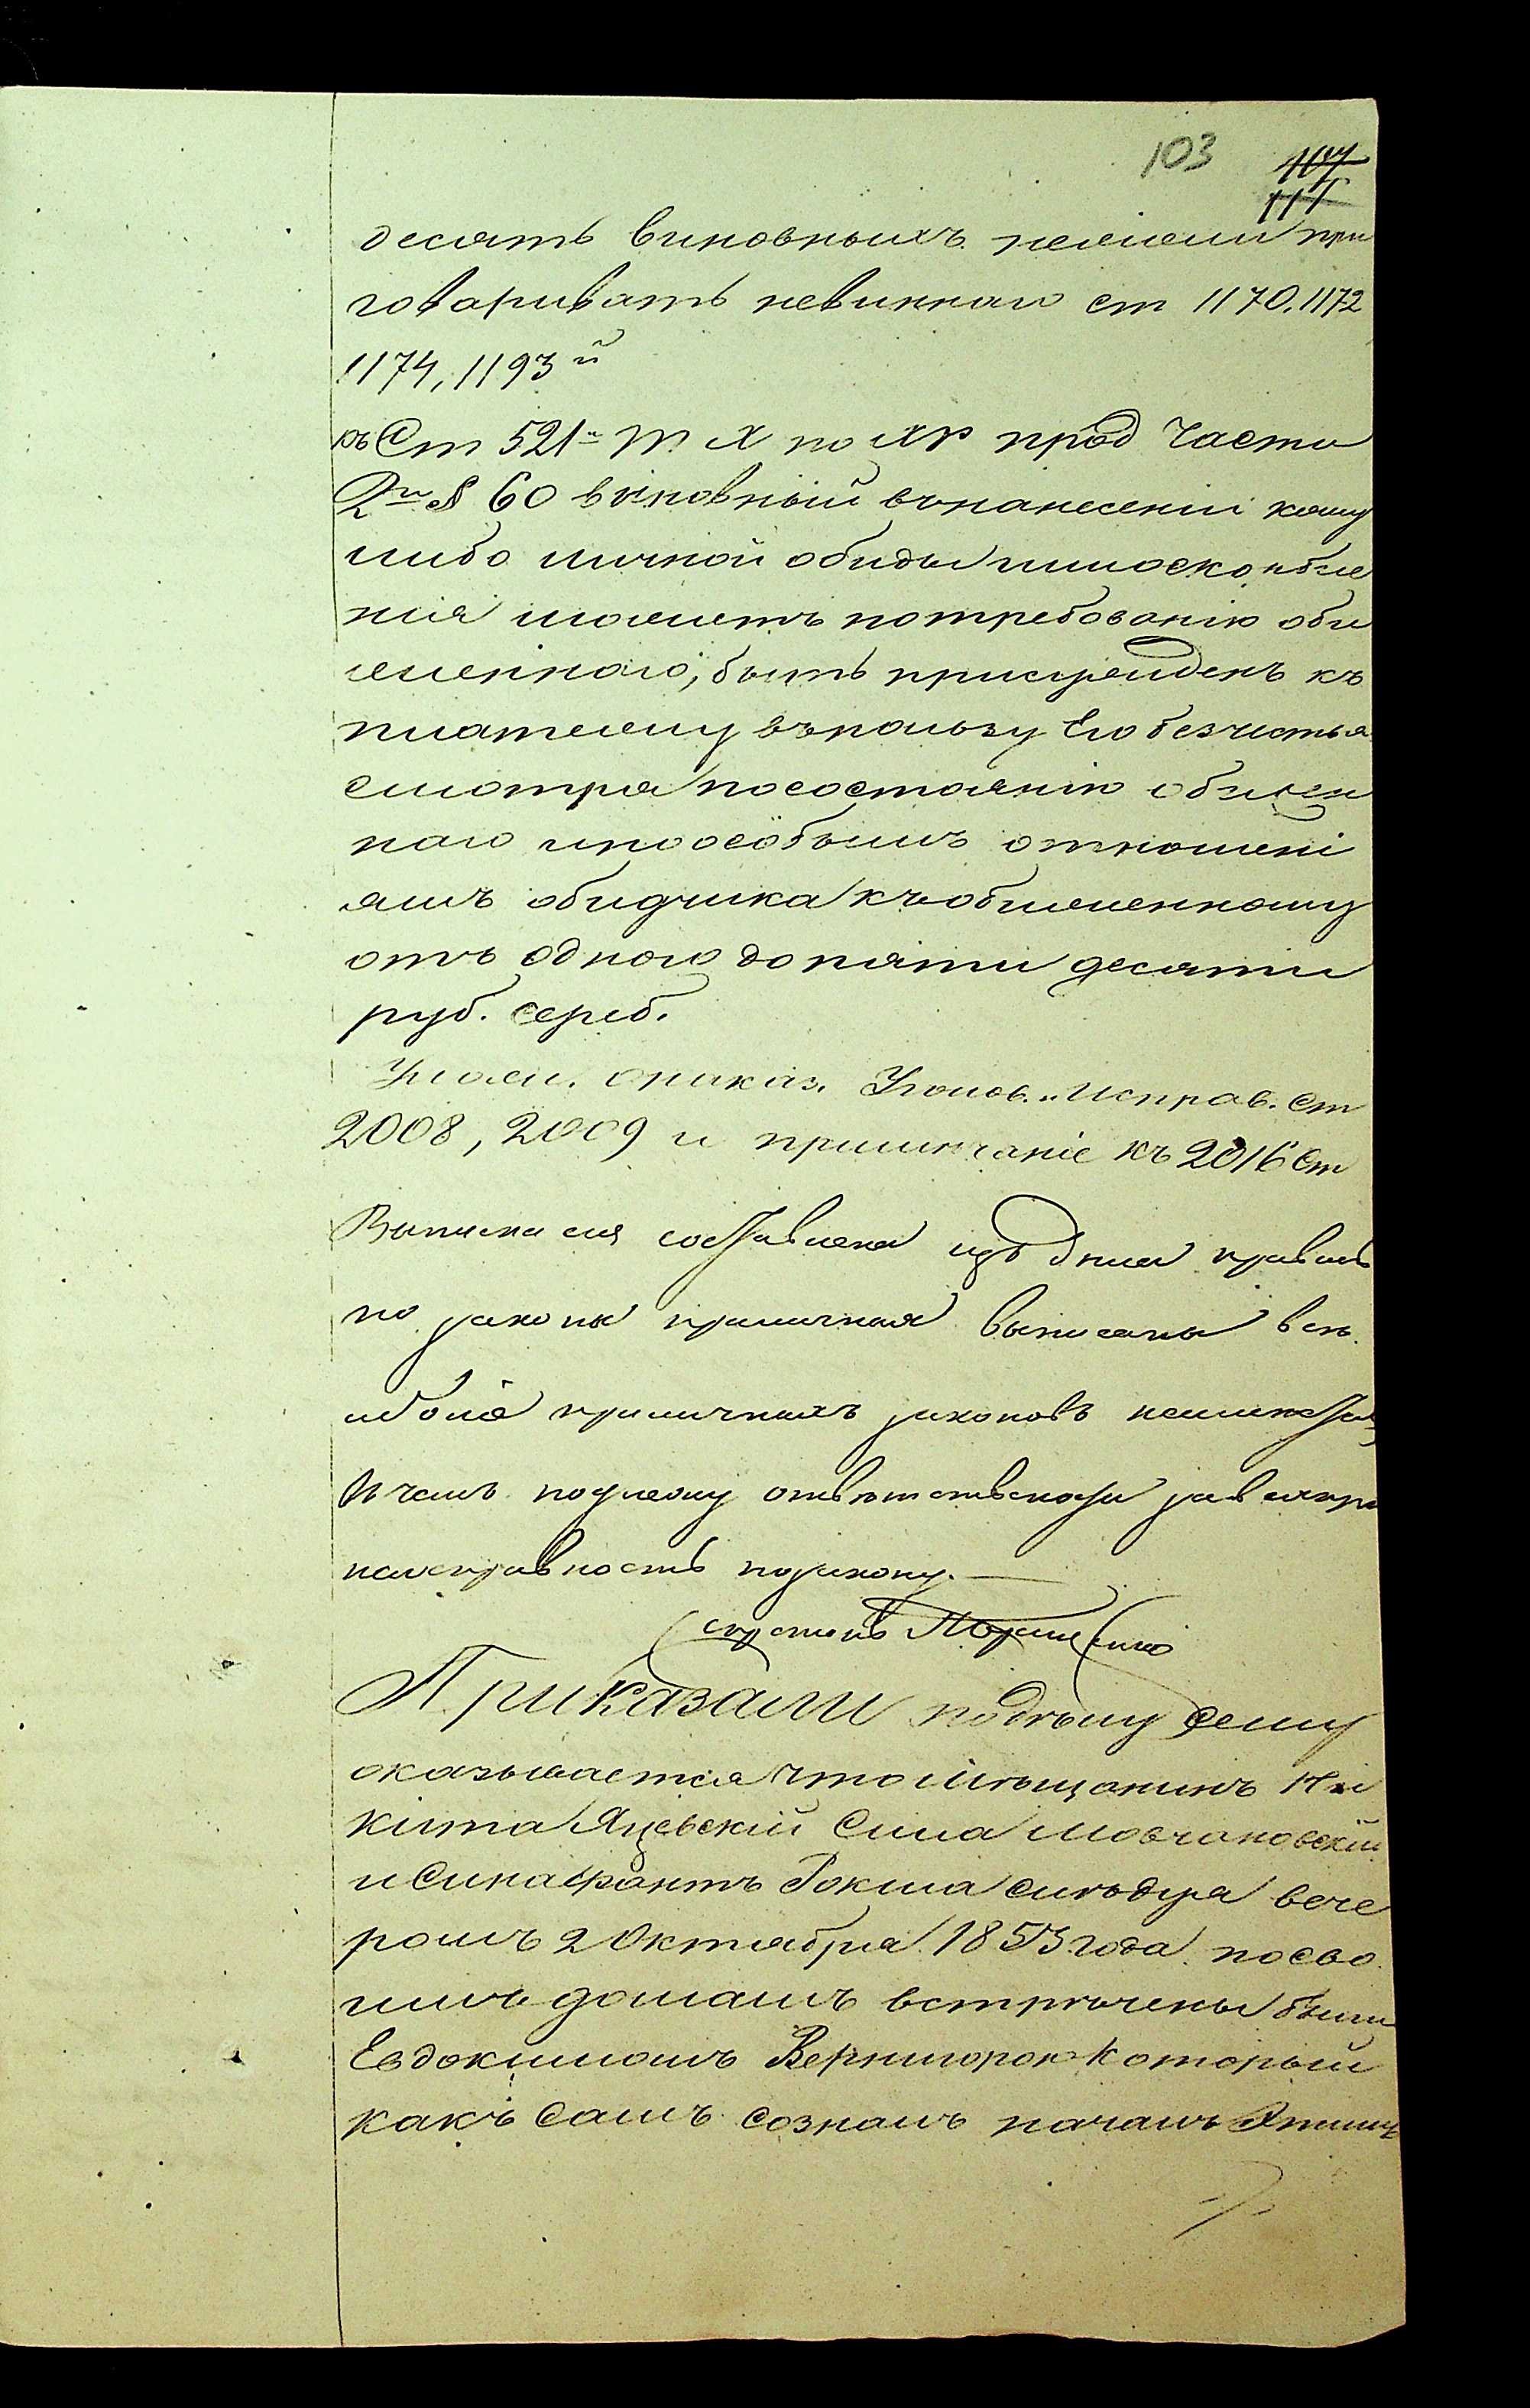 103 117
117
десять виновныхъ нежели при
говаривать невиннаго ст 1170. 1172
1174, 1193й
къ Ст 521й Т. X по XV прод Части
2й § 60 виновный въ нанесеніи кому
либо личной обиды или оскорбле
нія можетъ по требованію оби
женнаго, быть присужденъ къ
платежу въ пользу Его безчестья
смотря по состоянію обижен
наго и по особымъ отношені
ямъ обидчика къ обиженному
отъ одного до пяти десяти
руб. сереб.
Улож. о наказ. Уголов. и Исправ. Ст
2008, 2009 и примѣчаніе къ 2016 Ст
Выписка сія составлена изъ дѣла правиль
но законы приличныя выписаны всѣ
и болѣе приличныхъ законовъ неимѣется
въ чемъ подлежу отвѣтственности за всякую
неисправность по закону.
Приказали по дѣлу сему
оказывается что мѣщанинъ Ни
кита Яцевскій Сила Мовчановскій
и Синафонтъ Рокша сидѣвшия вече
ромъ 2 Октября 1853 года по сво
имъ домамъ встрѣчены были
Евдокимомъ Вернигорою который
какъ самъ сознался началъ